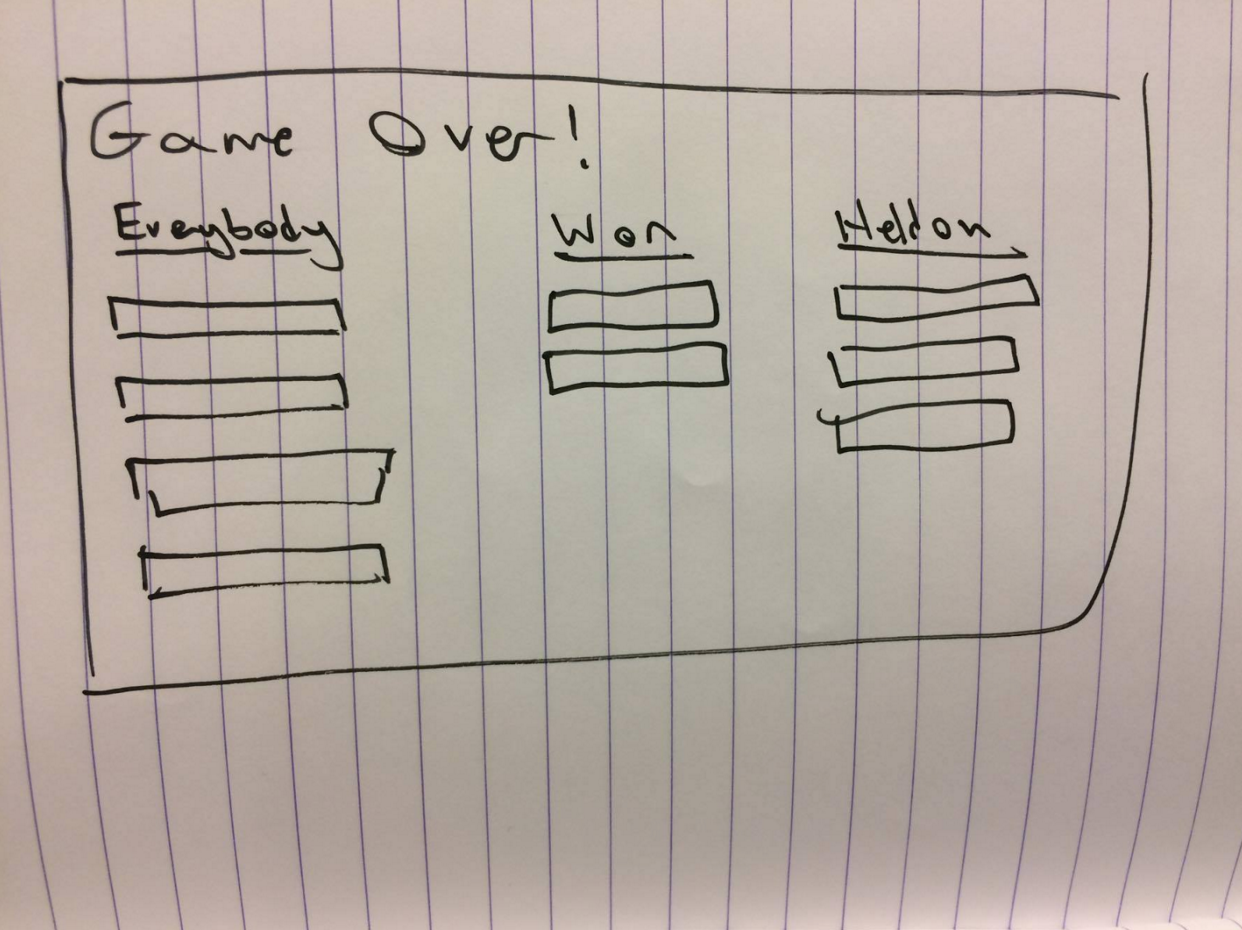 Game Over!
Everybody
Won
Held on